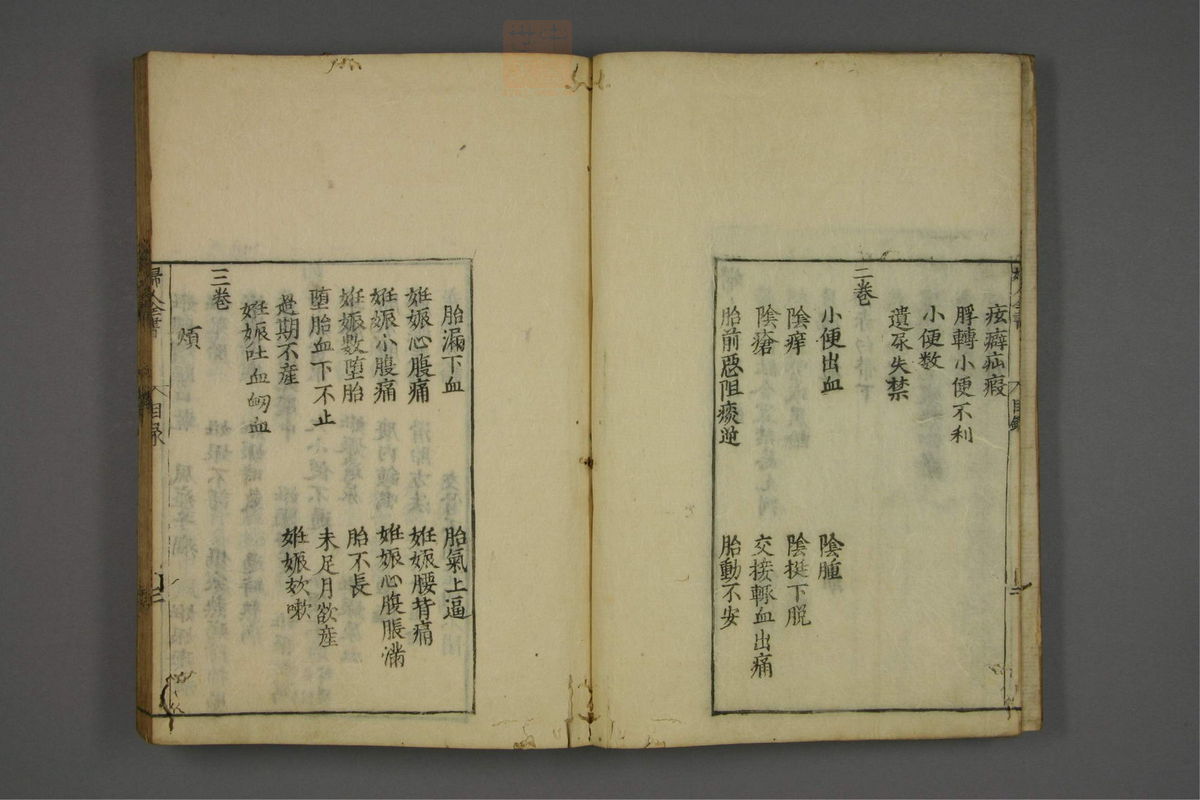 痃癖疝瘕
脬轉小便不利
小便數
遺尿失禁
二卷
小便出血
陰腫
陰痒
陰挺下脫
陰瘡
交接輒血出痛
胎前惡阻痰逆
胎動不安
目錄
二
胎漏下血
胎氣上逼
姙娠心腹痛
姙娠腰背痛
姙娠小腹痛
姙娠心腹脹滿
姙娠數堕胎
胎不長
堕胎血下不止
未足月欲産
過期不産
姙娠欬嗽
姙娠吐血衂血
三卷
煩
婦人全書
目录